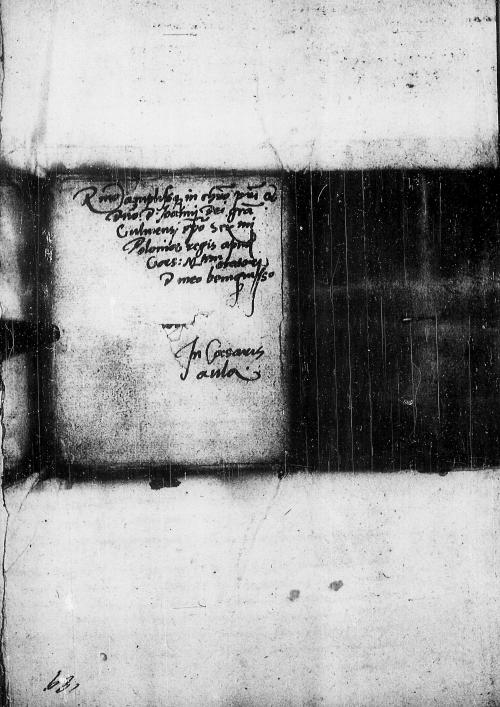 Rmo ampliss. in chro pri &
Dno D Joanni Dei gra
Culmensi epo Ser mi
Poloniae regis apud
Caes: M. tem oratori
D meo benigniss o
In Caesaris
aula.